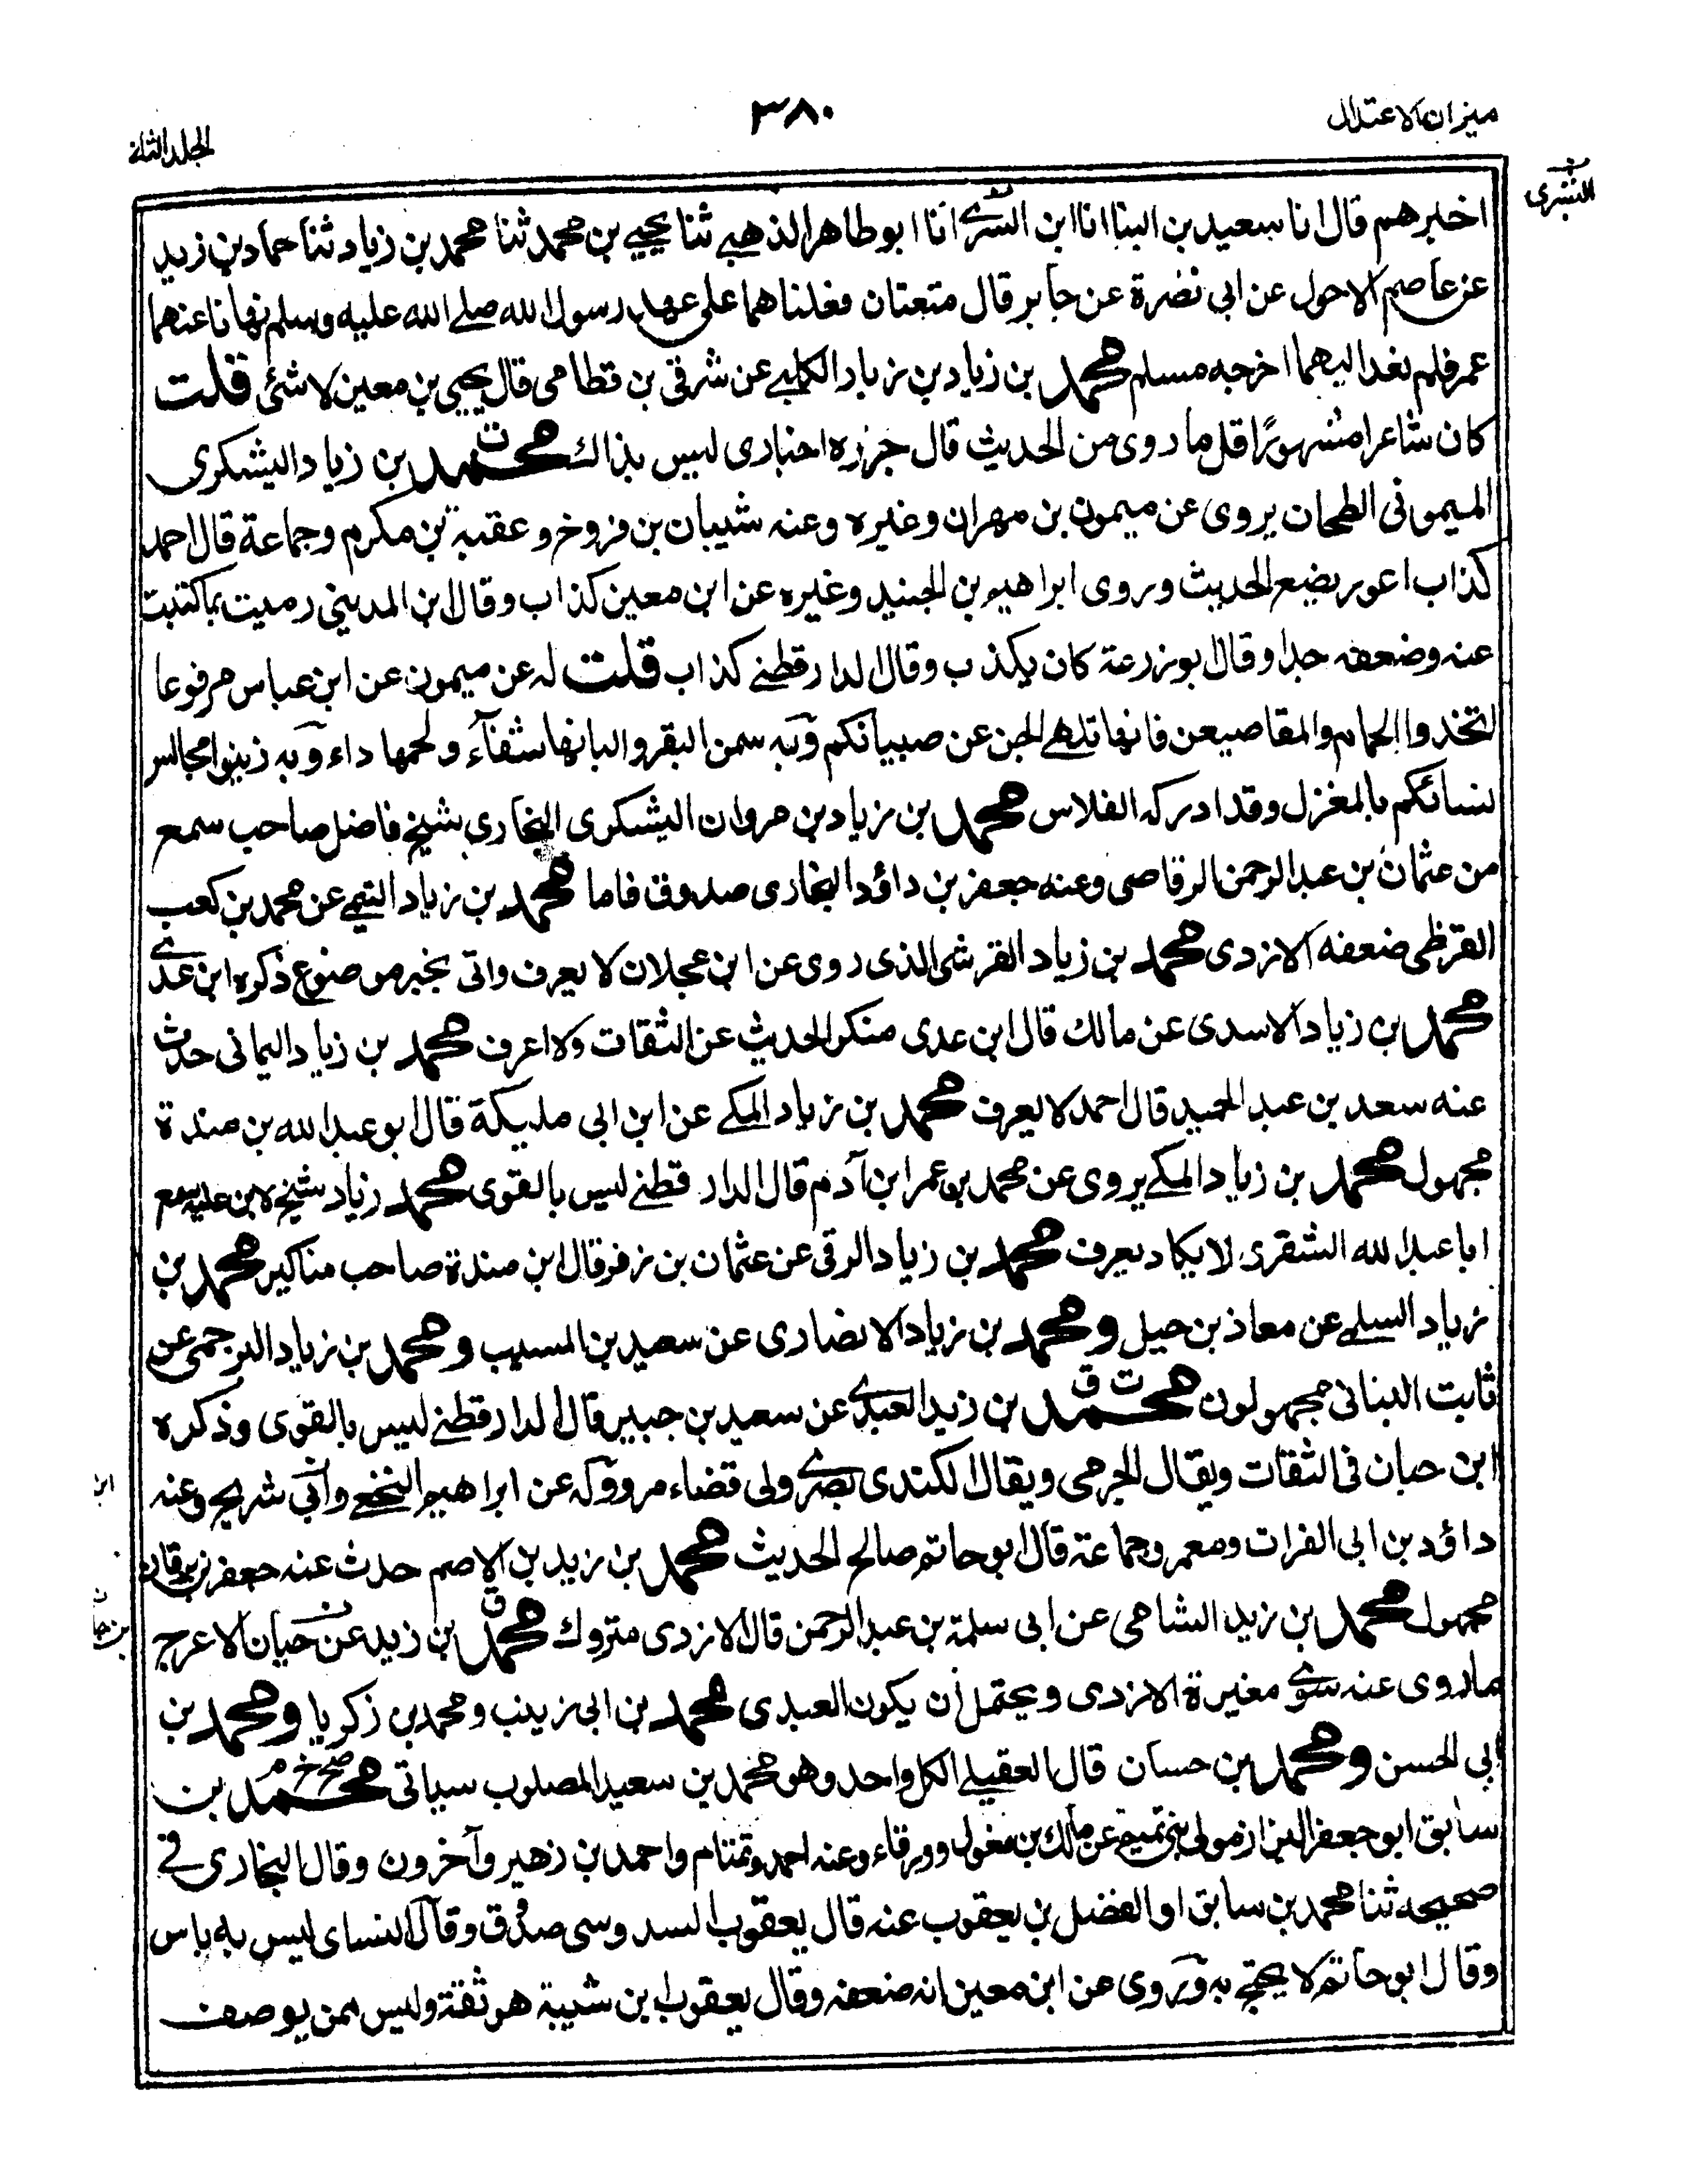 ميزان الاعتدال
٣٨٠
الجلد الثاني
اخبرهم قال انا سعيد بن البنا انا ابن السرى انا ابو طاهر الذهبى ثنا يحيى بن محمد ثنا محمد بن زياد ثنا حماد بن زيد
عن عاصم الاحول عن ابى نضرة عن جابر قال متعتان فعلناهما على عهد رسول الله صلے الله عليه وسلم نهانا عنهما
عمر فلم نعد اليهما اخرجه مسلم محمد بن زياد بن زبار الكلبے عن شرقى بن قطامى قال يحيى بن معين لا شئ قلت
كان شاعرا مشهورًا قل ما روى من الحديث قال جزره اخبارى ليس بذاك محمد ت بن زياد اليشكرى
الميمونى الطحان يروى عن ميمون بن مهران وغيره وعنه شيبان بن فروخ وعقبة بن مكرم وجماعة قال احمد
كذاب اعور يضع الحديث وروى ابراهيم بن الجنيد وغيره عن ابن معين كذاب وقال ابن المدينى رميت بما كتبت
عنه وضعفه جدا وقال بوزرعة كان يكذب وقال الدارقطنے كذاب قلت له عن ميمون عن ابن عباس مرفوعا
اتخذوا الحمام والمقاصيص فانها تلهے الجن عن صبيانكم وَبه سمن البقر والبانها شفآء ولحمها داء وَبه زينوا مجالس
نسائكم بالمغزل وقد ادركه الفلاس محمد بن زياد بن مروان اليشكرى البخارى شيخ فاضل صاحب سمع
من عثمان بن عبد الرحمن الوقاصى وعنه جعفر بن داؤد البخارى صدوق فاما محمد بن زياد التيمے عن محمد بن كعب
القرظى ضعفه الازدى محمد بن زياد القرشى الذى روى عن ابن عجلان لا يعرف واتى بخبر موضوع ذكره ابن عدے
محمد بن زياد الاسدى عن مالك قال ابن عدى منكر الحديث عن الثقات ولا اعرف محمد بن زياد اليمانى حدث
عنه سعد بن عبد الحميد قال احمد لا يعرف محمد بن زياد المكے عن ابن ابى مليكة قال ابو عبد الله بن مندة
مجهول محمد بن زياد المكے يروى عن محمد بن عمر ابن آدم قال الدار قطنے ليس بالقوى محمد زياد شيخ لابن علية سمع
ابا عبد الله الشقرى لا يكاد يعرف محمد بن زياد الرقى عن عثمان بن زفر قال ابن مندة صاحب مناكير محمد بن
زياد السلمے عن معاذ بن جبل و محمد بن زياد الانصارى عن سعيد بن المسيب و محمد بن زياد البرجمى عن
ثابت البنانى مجهولون محمد ت ق بن زيد العبدے عن سعيد بن جبير قال الدارقطنے ليس بالقوى وذكره
ابن حبان فى الثقات ويقال الجرمى ويقال الكندى بصرے ولى قضاء مرو وَله عن ابراهيم النخعے وابى شريح وعنه
داؤد بن ابى الفرات ومعمر وجماعة قال ابو حاتم صالح الحديث محمد بن زيد بن الاصم حدث عنه جعفر بن برقان
مجهول محمد بن زيد الشامى عن ابى سلمة بن عبد الرحمن قال الازدى متروك محمد ق بن زيد عن حيان الاعرج
ما روى عنه سوے مغيرة الازدى ويحتمل أن يكون العبدى محمد بن ابى زينب ومحمد بن زكريا و محمد بن
ابى الحسن و محمد بن حسان قال العقيلے الكل واحد وهو محمد بن سعيد المصلوب سياتى محمد صح خ م بن
سابق ابو جعفر البزاز مولى بنى تميم عن مالك بن مغول وورقاء وعنه احمد وتمتام واحمد بن زهير وآخرون وقال البخارى فى
صحيحه ثنا محمد بن سابق او الفضل بن يعقوب عنه قال يعقوب السدوسى صدُوق وقال النساى ليس به باس
وقال ابو حاتم لا يحتج به وَيروى عن ابن معين انه ضعفه وقال يعقوب ابن شيبة هو ثقة وليس ممن يوصف